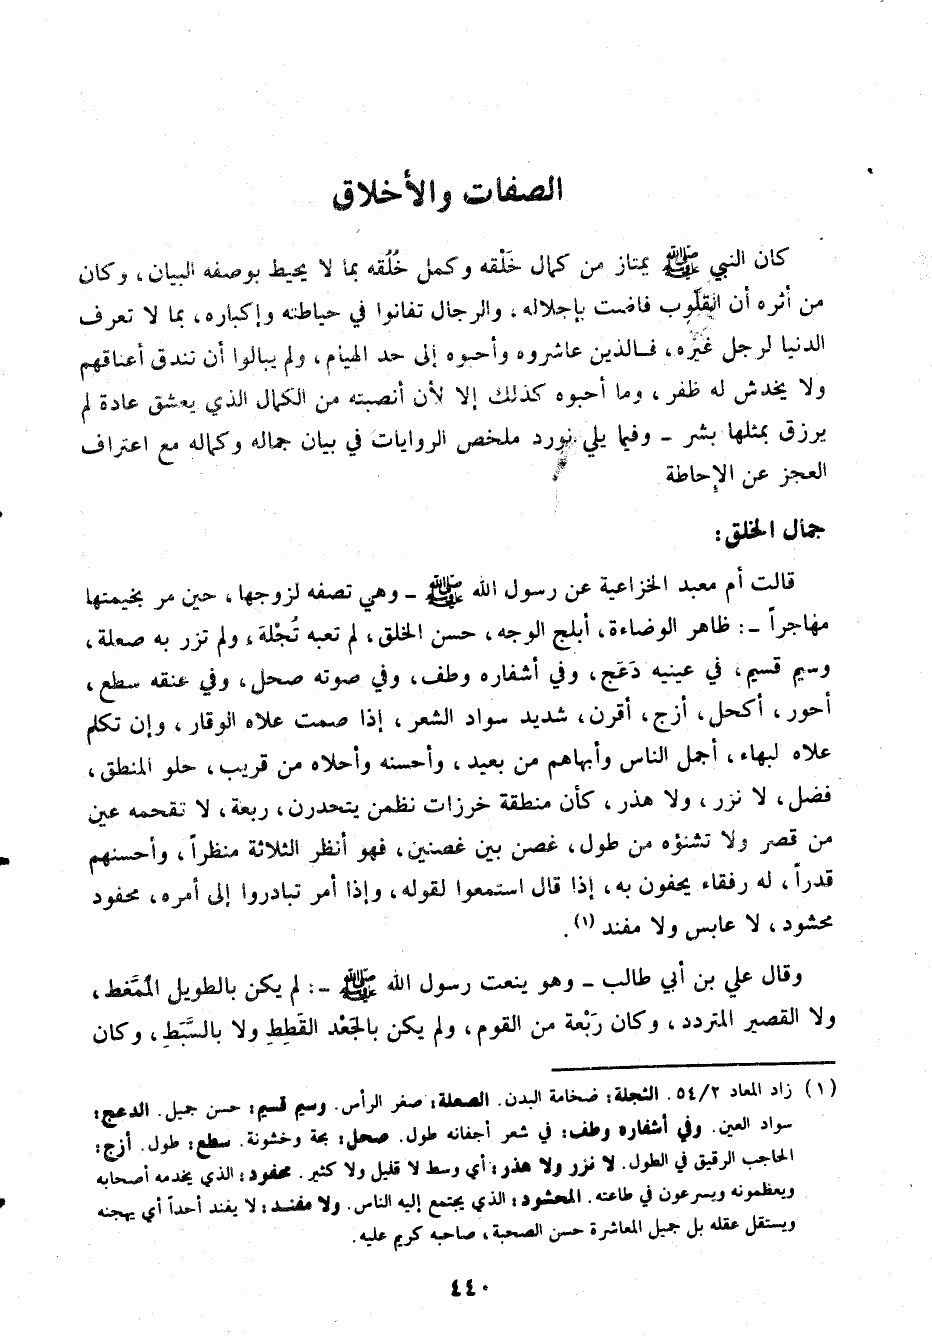 الصفات والأخلاق
كان النبي ﷺ يمتاز من كمال خَلْقه وكمل خُلُقه بما لا يحيط بوصفه البيان، وكان
من أثره أن القلوب فاضت بإجلاله، والرجال تفانوا في حياطته وإكباره، بما لا تعرف
الدنيا لرجل غيره، فـالذين عاشروه وأحبوه إلى حد الهيام، ولم يبالوا أن تندق أعناقهم
ولا يخدش له ظفر، وما أحبوه كذلك إلا لأن أنصبته من الكمال الذي يعشق عادة لم
يرزق بمثلها بشر ـ وفيما يلي نورد ملخص الروايات في بيان جماله وكماله مع اعتراف
العجز عن الإحاطة
جمال الخلق:
قالت أم معبد الخزاعية عن رسول الله ﷺ ـ وهي تصفه لزوجها، حين مر بخيمتها
مهاجراً ـ: ظاهر الوضاءة، أبلج الوجه، حسن الخلق، لم تعبه تُجْلة، ولم تزر به صعلة،
وسيم قسيم، في عينيه دَعَج، وفي أشفاره وطف، وفي صوته صحل، وفي عنقه سطع،
أحور، أكحل، أزج، أقرن، شديد سواد الشعر، إذا صمت علاه الوقار، وإن تكلم
علاه لبهاء، أجمل الناس وأبهاهم من بعيد، وأحسنه وأحلاه من قريب، حلو المنطق،
فضل، لا نزر، ولا هذر، كأن منطقة خرزات نظمن يتحدرن، ربعة، لا تقحمه عين
من قصر ولا تشنؤه من طول، غصن بين غصنين، فهو أنظر الثلاثة منظراً، وأحسنهم
قدراً، له رفقاء يحفون به، إذا قال استمعوا لقوله، وإذا أمر تبادروا إلى أمره، محفود
محشود، لا عابس ولا مفند (١).
وقال علي بن أبي طالب ـ وهو ينعت رسول الله ﷺ ـ: لم يكن بالطويل الُممَّغط،
ولا القصير المتردد، وكان رَبْعة من القوم، ولم يكن بالجَعْد القَطِطِ ولا بالسَّبَطِ، وكان
(١) زاد المعاد ٥٤/٢. الثجلة: ضخامة البدن. الصعلة: صغر الرأس. وسيم قسيم: حسن جميل. الدعج:
سواد العين. وفي أشفاره وطف: في شعر أجفانه طول. صحل: بحة وخشونة. سطع: طول. أزج:
الحاجب الرقيق في الطول. لا نزر ولا هذر: أي وسط لا قليل ولا كثير. محفود: الذي يخدمه أصحابه
ويعظمونه ويسرعون في طاعته. المحشود: الذي يجتمع إليه الناس. ولا مفنـد: لا يفند أحداً أي يهجنه
ويستقل عقله بل جميل المعاشرة حسن الصحبة، صاحبه كريم عليه.
٤٤٠